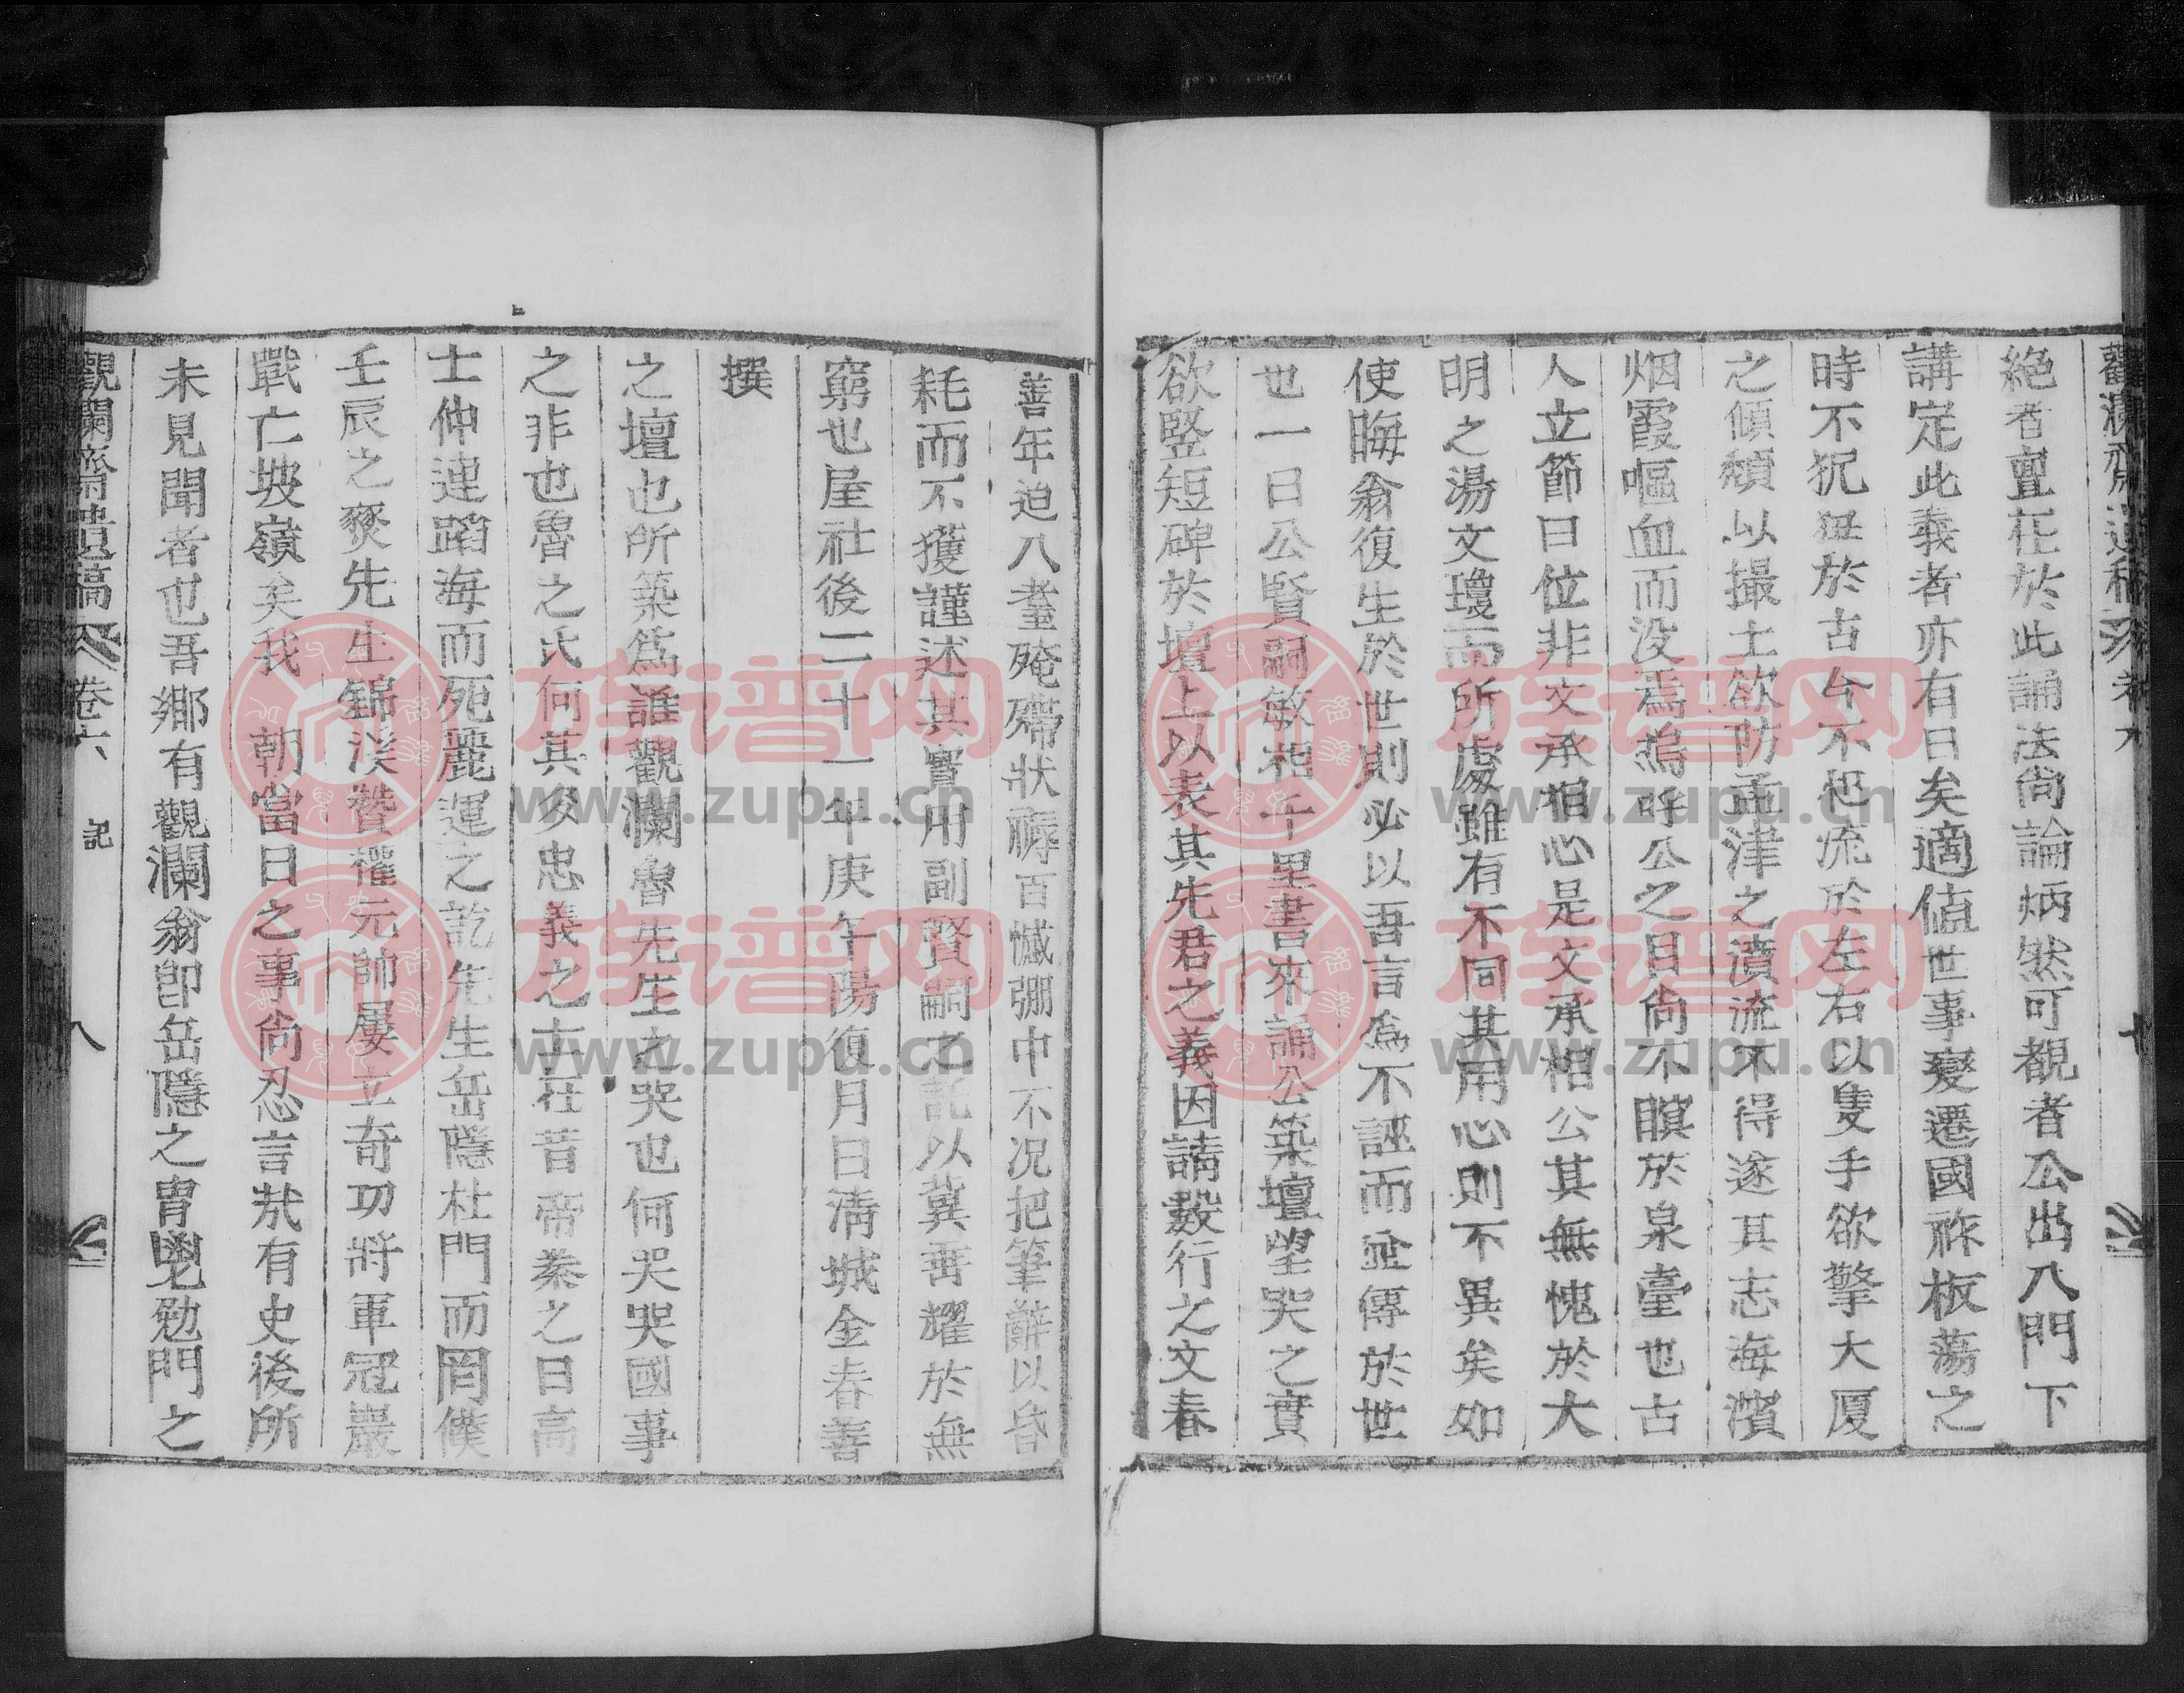 觀瀾齋遺稿 卷六
絶者亶在於此誦法尙論炳然可覩者公出入門下
講定此義者亦有日矣適値世事變遷國祚板蕩之
時不狃狂於古今不邇流於左右以隻手欲擎大厦
之傾頹以撮土欲防孟津之瀆流不得遂其志海濱
烟霞嘔血而沒焉嗚呼公之目尙不瞑於泉臺也古
人立節曰位非文承相心是文承相公其無愧於大
明之湯文瓊而所處雖有不同其用心則不異矣如
使晦翁復生於世則必以吾言爲不誣而並傳於世
也一日公賢嗣敏相千里書來誦公築壇望哭之實
欲竪短碑於壇上以表其先君之義因請數行之文春
善年迫八耋殗殢狀褥百憾弸中不况把筆辭以昏
耗而不獲謹述其實用副賢嗣之託以冀毋耀於無
窮也屋社後二十一年庚午陽復月日淸城金春善
撰
之壇也所築爲誰觀瀾魯先生之哭也何哭哭國事
之非也魯之氏何其多忠義之士在昔帝秦之日高
士仲連蹈海而死麗運之訖先生岳隱杜門而罔僕
壬辰之燹先生錦溪贊權元帥屢立奇功將軍冠巖
戰亡坡嶺矣我 朝當日之事尙忍言哉有史後所
未見聞者也吾鄕有觀瀾翁卽岳隱之冑黽勉門之
觀瀾齋遺稿 卷六 記 八
族谱网
www.zupu.cn
族谱网
www.zupu.cn
族谱网
www.zupu.cn
族谱网
www.zupu.cn